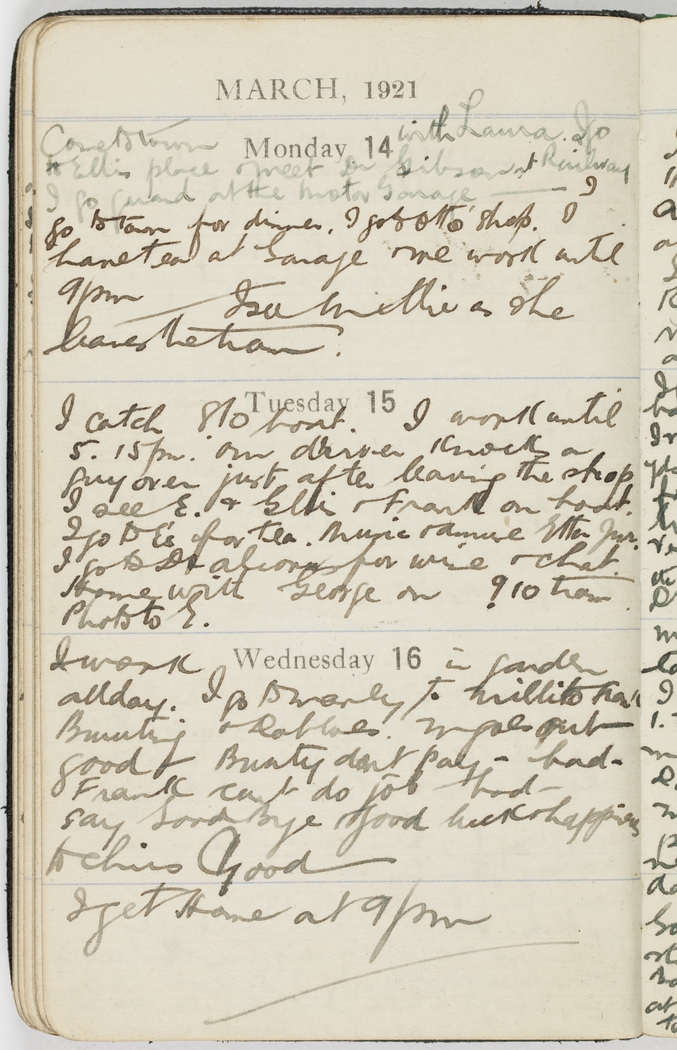 MARCH, 1921
Come to town with Laura. I go
Monday 14
to Ellis place & meet Dr Gibson at Railway
I go guard at the motor Garage — I
go to town for dinner. I go to Otto' shop. I
have tea at Garage & me work until
9pm I see Nellie as she
leaves the tram.
Tuesday 15
I catch 810 boat. I work until
5.15pm. our driver knocks a
guy over just after leaving the shop
I see E. & Elsie & Frank on boat.
I go to E's for tea. Music & admire Etta Jnr.
I go to for wine & chat.
Home with George on 910 tram.
Photo to E.
Wednesday 16
I work in garden
all day. I go to Manly to
Bunting & Rabbits. out
good & Bunty dont pay - bad -
Frank cant do job bad -
say Good bye & good luck & happiness
to Good
I get Home at 9pm